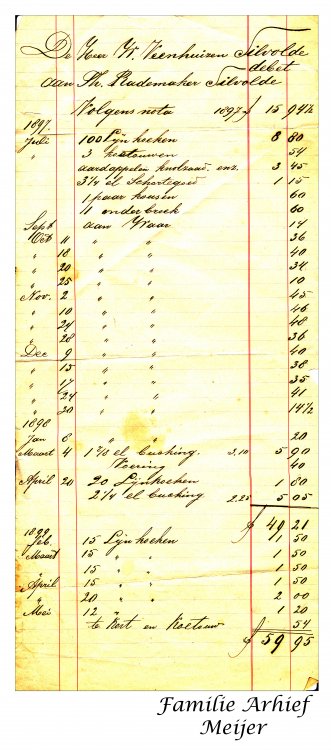 De Heer W. Veenhuizen Silvolde
debet
aan Th. Rademaker Silvolde
Volgens nota 1897 f 15 94½
1897.
Juli 100 Lijnkoeken 8 80
" 3 koetouwen 54
aardappelen knolzaad. enz. 3 45
3¼ el Schortegoed 1 15
1 paar kousen 60
1 onderbroek 60
Sept aan Waar 24
Oct 11 " " 36
" 18 " " 40
" 20 " " 34
" 25 " " 10
Nov. 2 " " 45
" 10 " " 46
" 24 " " 48
" 28 " " 36
Dec 9 " " 40
" 15 " " 38
" 17 " " 35
" 24 " " 41
" 30 " " 14½
1898
Jan 8 " " 20
Maart 4 el Bucking. 2.10 5 90
Voering 40
April 20 20 Lijnkoeken 1 80
2¼ el Bucking 2.25 5 05
f 49 21
1899
Feb. 15 Lijnkoeken 1 50
Maart 15 " 1 50
" 15 " 1 50
April 15 " 1 50
" 20 " 2 00
Mei 12 " 1 20
te kort en Koetouw 54
f 59 95
Familie Arhief
Meijer